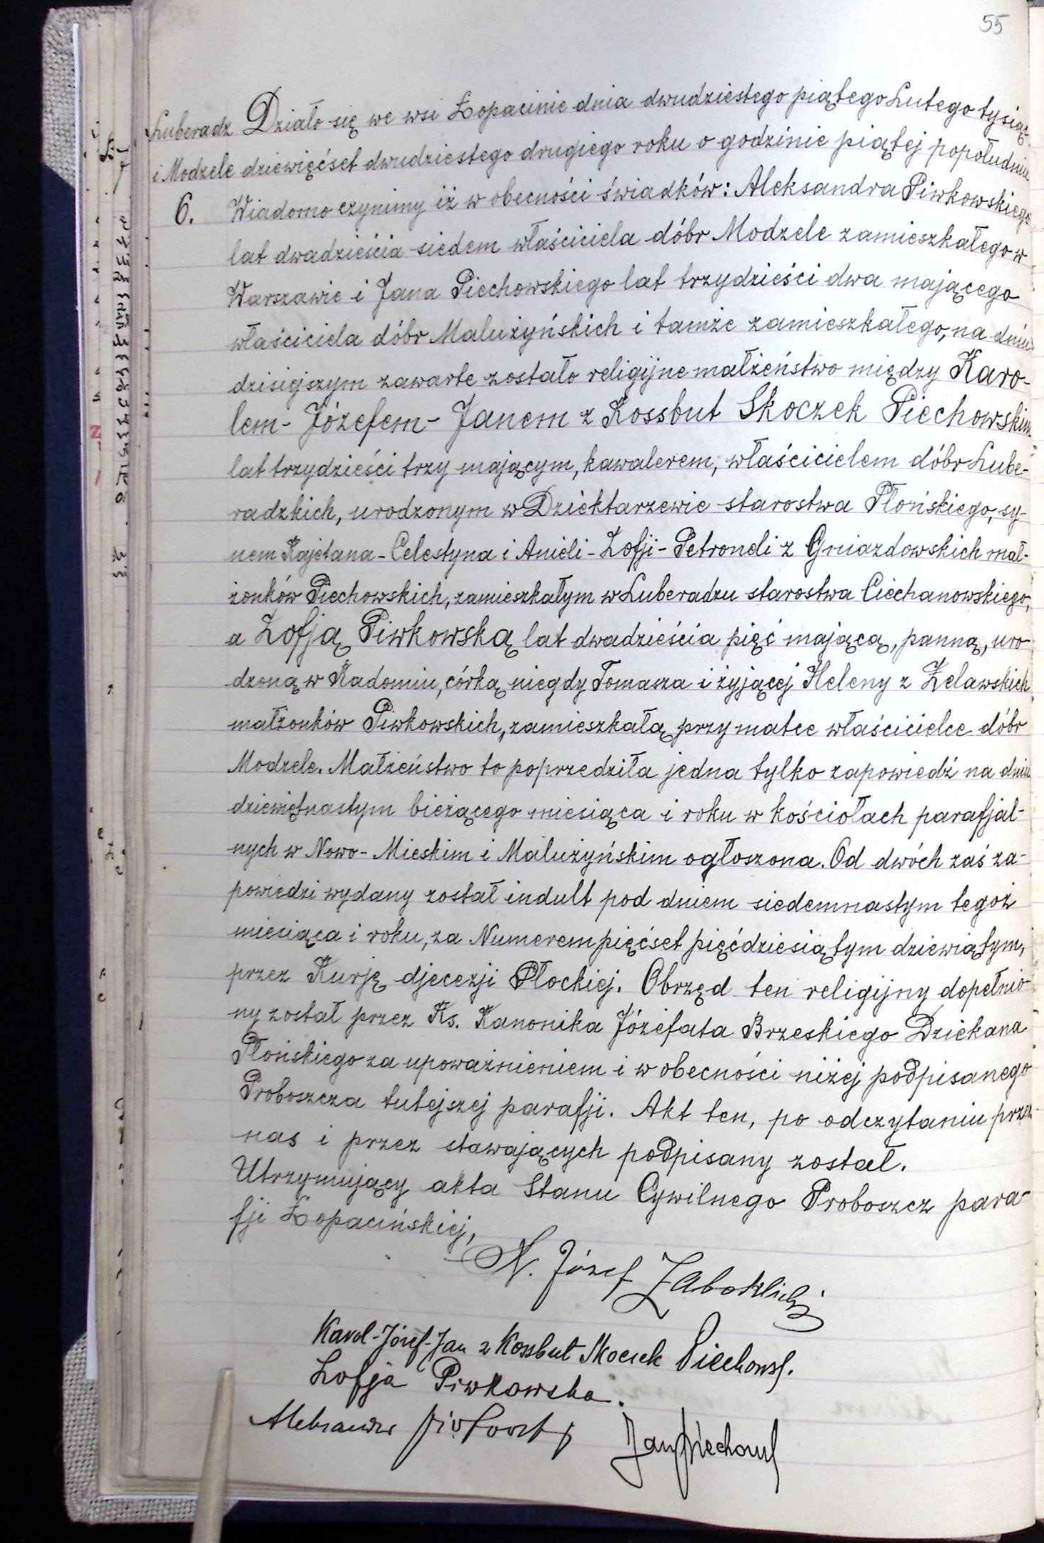 55
Luberadz Działo się we wsi Łopacinie dnia dwudziestego piątego Lutego tysiąc
i Modzele dziewięćset dwudziestego drugiego roku o godzinie piątej popołudniu
6. Wiadomo czynimy iż w obecności świadków: Aleksandra Piwkowskiego
lat dwadzieścia siedem właściciela dóbr Modzele zamieszkałego w
Warszawie i Jana Piechowskiego lat trzydzieści dwa mającego
właściciela dóbr Malużyńskich i tamże zamieszkałego, na dniu
dzisiejszym zawarte zostało religijne małżeństwo między Karo-
lem - Józefem - Janem z Kossbut Skoczek Piechowskim
lat trzydzieści trzy mającym, kawalerem, właścicielem dóbr Lube-
radzkich, urodzonym w Dziektarzewie starostwa Płońskiego, sy-
nem Kajetana - Celestyna i Anieli - Zofji - Petroneli z Gniazdowskich mał-
żonków Piechowskich, zamieszkałym w Luberadzu starostwa Ciechanowskiego,
a Zofją Piwkowską lat dwadzieścia pięć mającą, panną, uro-
dzoną w Radomiu, córką niegdy Tomasza i żyjącej Heleny z Zelawskich
małżonków Piwkowskich, zamieszkałą przy matce właścicielce dóbr
Modzele. Małżeństwo to poprzedziła jedna tylko zapowiedź na dniu
dziewiętnastym bieżącego miesiąca i roku w kościołach parafjal-
nych w Nowo - Mieskim i Malużyńskim ogłoszona. Od dwóch zaś za-
powiedzi wydany został indult pod dniem siedemnastym tegoż
miesiąca i roku, za Numerem pięćset pięćdziesiątym dziewiątym,
przez Kurję djecezji Płockiej. Obrzęd ten religijny dopełnio-
ny został przez Ks. Kanonika Józefata Brzeskiego Dziekana
Płońskiego za upoważnieniem i w obecności niżej podpisanego
Proboszcza tutejszej parafji. Akt ten, po odczytaniu przez
nas i przez stawających podpisany został.
Utrzymujący akta Stanu Cywilnego Proboszcz para-
fji Łopacińskiej,
X. Józef Zaboklicki
Karol-Józef-Jan z Kossbut Skoczek Piechowsk.
Zofja Piwkowska.
Aleksander Piwkowski Jan Piechowsk